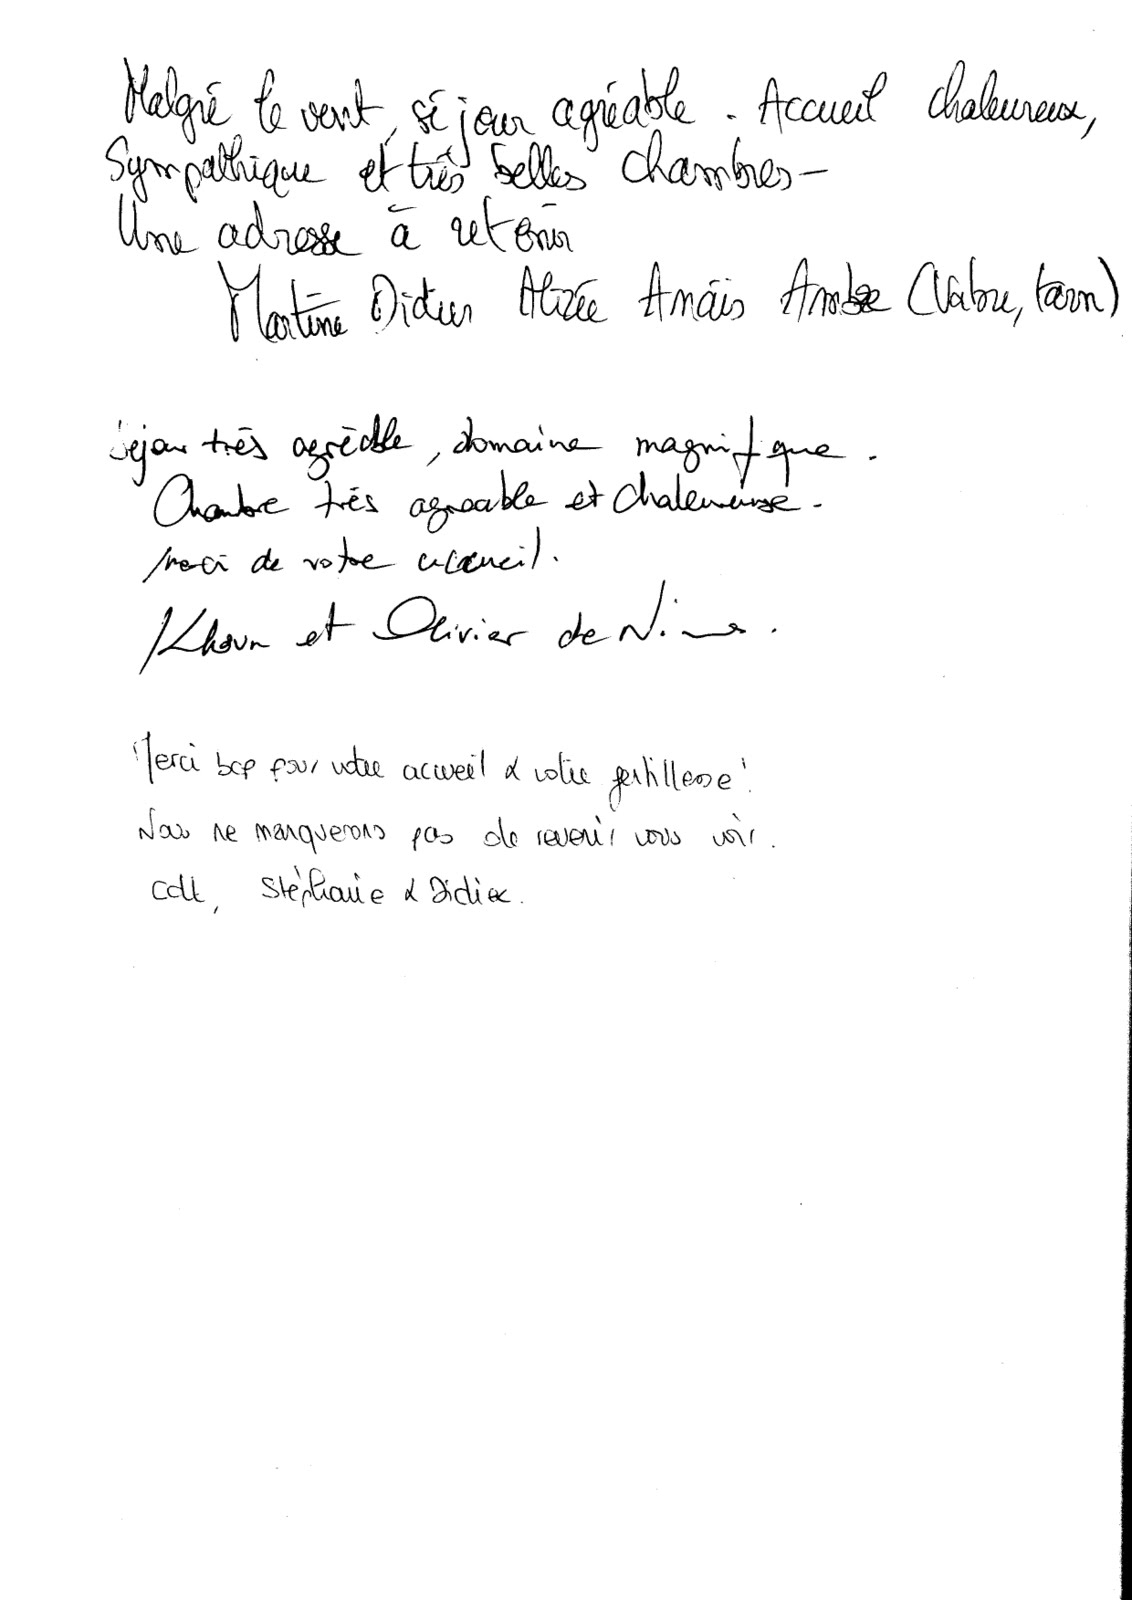 Malgré le vent, séjour agréable. Accueil chaleureux,
Sympathique et très belles chambres -
Une adresse à retenir
Martine Didier Alizée Anaïs Ambre (Vabre, tarn)
Séjour très agréable, domaine magnifique.
Chambre très agréable et chaleureuse.
Merci de votre accueil.
et Olivier de Nimes.
Merci bcp pour votre accueil & votre gentillesse !
Nous ne manquerons pas de revenir vous voir.
Cdt, Stéphanie & Didier.